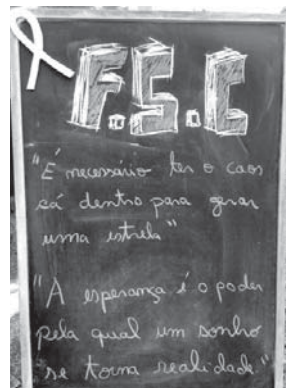 F.S.C
"É necessário ter o caos
cá dentro para gerar
uma estrela"
"A esperança é o poder
pela qual um sonho
se torna realidade."